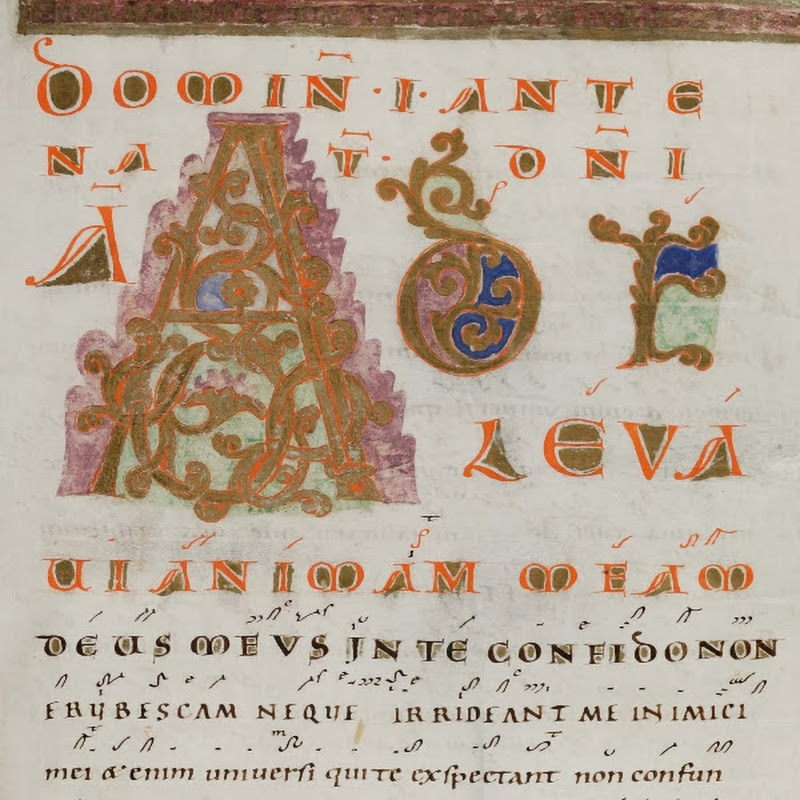 DOMIN̄·I·ANTE
NAT̄·DNI
Ā AD TE
LEVA
UI ANIMAM MEAM
DEUS MEVS IN TE CONFIDO NON
ERUBESCAM NEQUE IRRIDEANT ME INIMICI
mei &enim universi qui te exspectant non confun